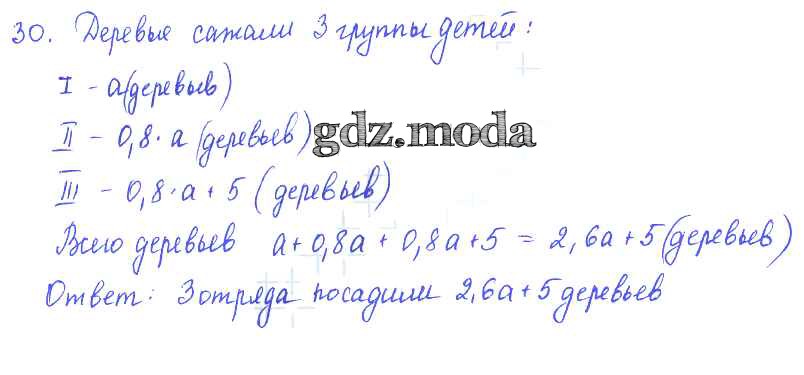 30. Деревья сажали 3 группы детей:
I - a (деревьев)
II - 0,8·a (деревьев)
gdz.moda
III - 0,8·a + 5 (деревьев)
Всего деревьев a + 0,8a + 0,8a + 5 = 2,6a + 5 (деревьев)
Ответ: 3 отряда посадили 2,6a + 5 деревьев